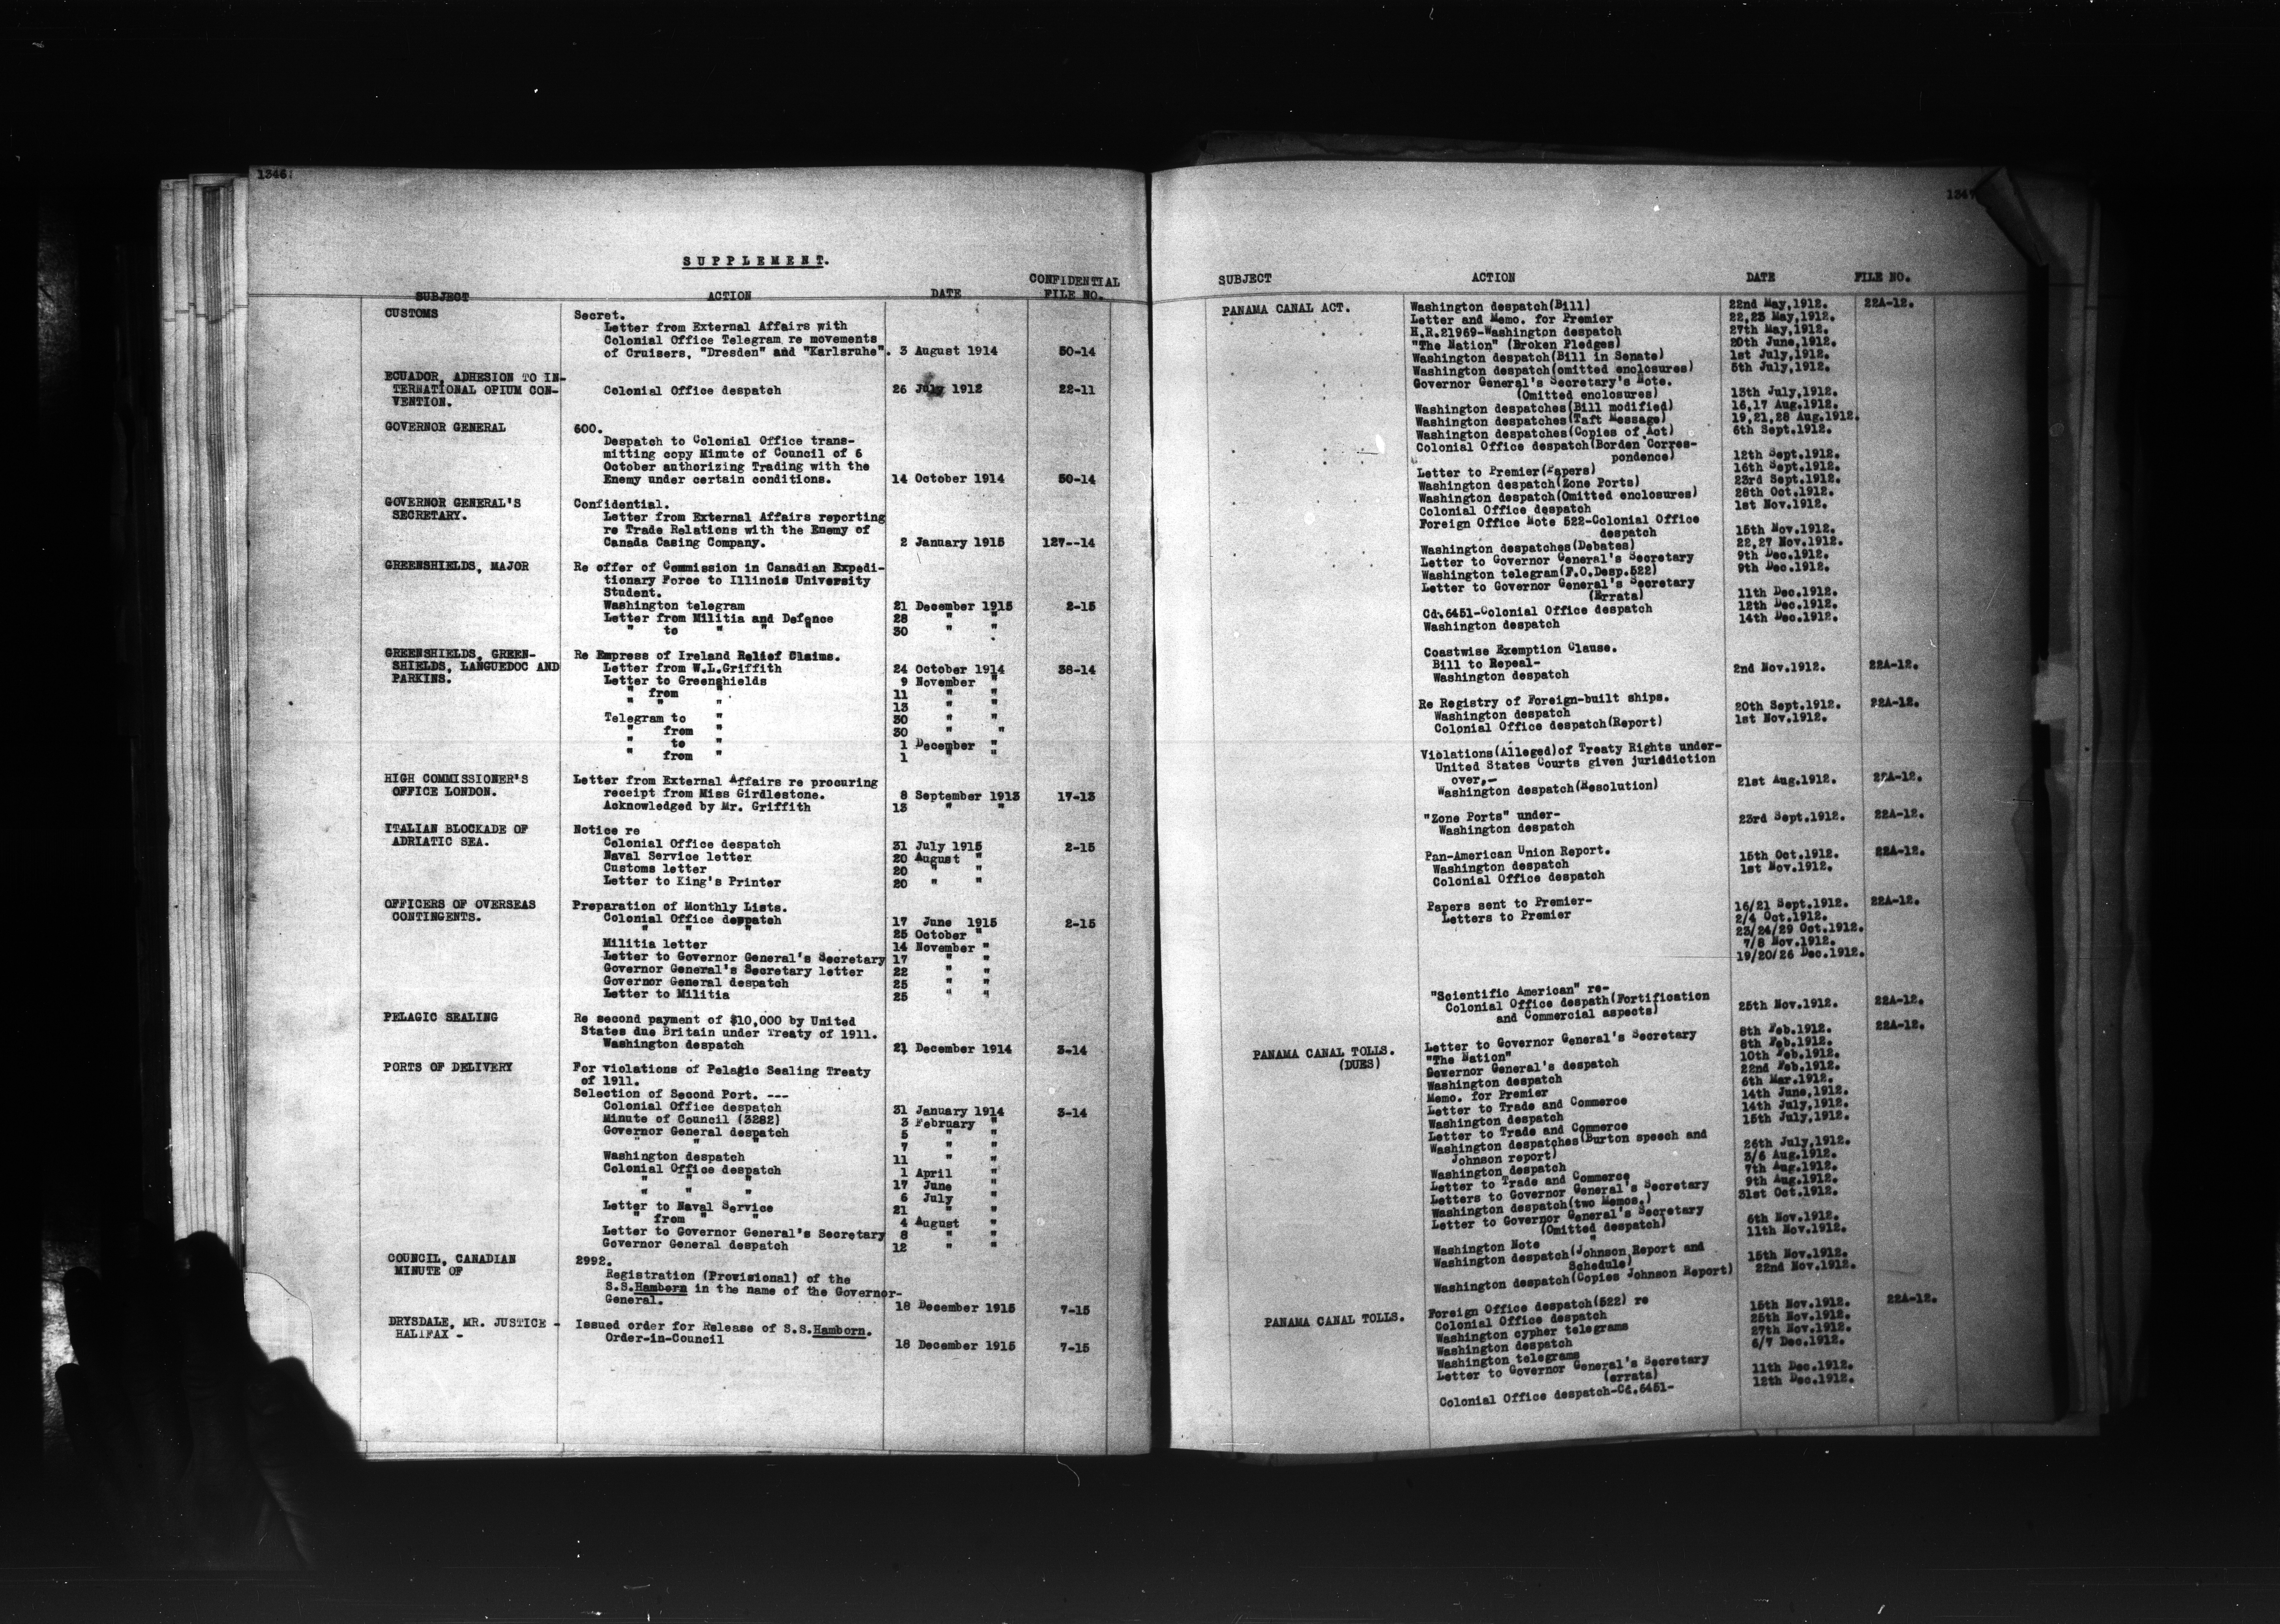 1346
SUPPLEMENT.
SUBJECT ACTION DATE CONFIDENTIAL FILE NO.
CUSTOMS Secret.
Letter from External Affairs with
Colonial Office Telegram re movements
of Cruisers, "Dresden" and "Karlsruhe". 3 August 1914 50-14
ECUADOR, ADHESION TO IN-
TERNATIONAL OPIUM CON- Colonial Office despatch 26 July 1912 22-11
VENTION.
GOVERNOR GENERAL 600.
Despatch to Colonial Office trans-
mitting copy Minute of Council of 6
October authorizing Trading with the
Enemy under certain conditions. 14 October 1914 50-14
GOVERNOR GENERAL'S Confidential.
SECRETARY. Letter from External Affairs reporting
re Trade Relations with the Enemy of
Canada Casing Company. 2 January 1915 127--14
GREENSHIELDS, MAJOR Re offer of Commission in Canadian Expedi-
tionary Force to Illinois University
Student.
Washington telegram 21 December 1915 2-15
Letter from Militia and Defence 28 " "
" to " " " 30 " "
GREENSHIELDS, GREEN- Re Empress of Ireland Relief Claims.
SHIELDS, LANGUEDOC AND Letter from W.L.Griffith 24 October 1914 38-14
PARKINS. Letter to Greenshields 9 November "
" from " 11 " "
" " " 13 " "
Telegram to " 30 " "
" from " 30 " "
" to " 1 December "
" from " 1 " "
HIGH COMMISSIONER'S Letter from External Affairs re procuring
OFFICE LONDON. receipt from Miss Girdlestone. 8 September 1913 17-13
Acknowledged by Mr. Griffith 13 " "
ITALIAN BLOCKADE OF Notice re
ADRIATIC SEA. Colonial Office despatch 31 July 1915 2-15
Naval Service letter 20 August "
Customs letter 20 " "
Letter to King's Printer 20 " "
OFFICERS OF OVERSEAS Preparation of Monthly Lists.
CONTINGENTS. Colonial Office despatch 17 June 1915 2-15
" " " 25 October "
Militia letter 14 November "
Letter to Governor General's Secretary 17 " "
Governor General's Secretary letter 22 " "
Governor General despatch 25 " "
Letter to Militia 25 " "
PELAGIC SEALING Re second payment of $10,000 by United
States due Britain under Treaty of 1911.
Washington despatch 21 December 1914 3-14
PORTS OF DELIVERY For violations of Pelagic Sealing Treaty
of 1911.
Selection of Second Port. ---
Colonial Office despatch 31 January 1914 3-14
Minute of Council (3282) 3 February "
Governor General despatch 5 " "
" " " 7 " "
Washington despatch 11 " "
Colonial Office despatch 1 April "
" " " 17 June "
" " " 6 July "
Letter to Naval Service 21 " "
" from " " 4 August "
Letter to Governor General's Secretary 8 " "
Governor General despatch 12 " "
COUNCIL, CANADIAN 2992.
MINUTE OF Registration (Provisional) of the
S.S.Hamborn in the name of the Governor-
General. 18 December 1915 7-15
DRYSDALE, MR. JUSTICE - Issued order for Release of S.S.Hamborn.
HALIFAX - Order-in-Council 18 December 1915 7-15
1347
SUBJECT ACTION DATE FILE NO.
PANAMA CANAL ACT. Washington despatch(Bill) 22nd May,1912. 22A-12.
Letter and Memo. for Premier 22,23 May,1912.
H.R.21969-Washington despatch 27th May,1912.
"The Nation" (Broken Pledges) 20th June,1912.
Washington despatch(Bill in Senate) 1st July,1912.
Washington despatch(omitted enclosures) 5th July,1912.
Governor General's Secretary's Note.
(Omitted enclosures) 13th July,1912.
Washington despatches(Bill modified) 16,17 Aug.1912.
Washington despatches(Taft Message) 19,21,28 Aug.1912.
Washington despatches(Copies of Act) 6th Sept.1912.
Colonial Office despatch(Borden Corres-
pondence) 12th Sept.1912.
Letter to Premier(Papers) 16th Sept.1912.
Washington despatch(Zone Ports) 23rd Sept.1912.
Washington despatch(Omitted enclosures) 28th Oct.1912.
Colonial Office despatch 1st Nov.1912.
Foreign Office Note 522-Colonial Office
despatch 15th Nov.1912.
Washington despatches(Debates) 22,27 Nov.1912.
Letter to Governor General's Secretary 9th Dec.1912.
Washington telegram(F.O.Desp.522) 9th Dec.1912.
Letter to Governor General's Secretary
(Errata) 11th Dec.1912.
Cd.6451-Colonial Office despatch 12th Dec.1912.
Washington despatch 14th Dec.1912.
Coastwise Exemption Clause.
Bill to Repeal-
Washington despatch 2nd Nov.1912. 22A-12.
Re Registry of Foreign-built ships.
Washington despatch 20th Sept.1912. 22A-12.
Colonial Office despatch(Report) 1st Nov.1912.
Violations(Alleged)of Treaty Rights under-
United States Courts given jurisdiction
over,-
Washington despatch(Resolution) 21st Aug.1912. 22A-12.
"Zone Ports" under-
Washington despatch 23rd Sept.1912. 22A-12.
Pan-American Union Report.
Washington despatch 15th Oct.1912. 22A-12.
Colonial Office despatch 1st Nov.1912.
Papers sent to Premier- 16/21 Sept.1912. 22A-12.
Letters to Premier 2/4 Oct.1912.
23/24/29 Oct.1912.
7/8 Nov.1912.
19/20/26 Dec.1912.
"Scientific American" re-
Colonial Office despath(Fortification 25th Nov.1912. 22A-12.
and Commercial aspects)
PANAMA CANAL TOLLS. Letter to Governor General's Secretary 8th Feb.1912. 22A-12.
(DUES) "The Nation" 8th Feb.1912.
Governor General's despatch 10th Feb.1912.
Washington despatch 22nd Feb.1912.
Memo. for Premier 6th Mar.1912.
Letter to Trade and Commerce 14th June,1912.
Washington despatch 14th July,1912.
Letter to Trade and Commerce 15th July,1912.
Washington despatches(Burton speech and
Johnson report) 26th July,1912.
Washington despatch 3/6 Aug.1912.
Letter to Trade and Commerce 7th Aug.1912.
Letters to Governor General's Secretary 9th Aug.1912.
Washington despatch(two Memos.) 31st Oct.1912.
Letter to Governor General's Secretary
(Omitted despatch) 6th Nov.1912.
Washington Note " 11th Nov.1912.
Washington despatch(Johnson Report and
Schedule) 15th Nov.1912.
Washington despatch(Copies Johnson Report) 22nd Nov.1912.
PANAMA CANAL TOLLS. Foreign Office despatch(522) re 15th Nov.1912. 22A-12.
Colonial Office despatch 25th Nov.1912.
Washington cypher telegrams 27th Nov.1912.
Washington despatch 6/7 Dec.1912.
Washington telegrams
Letter to Governor General's Secretary 11th Dec.1912.
(errata) 12th Dec.1912.
Colonial Office despatch-Cd.6451-